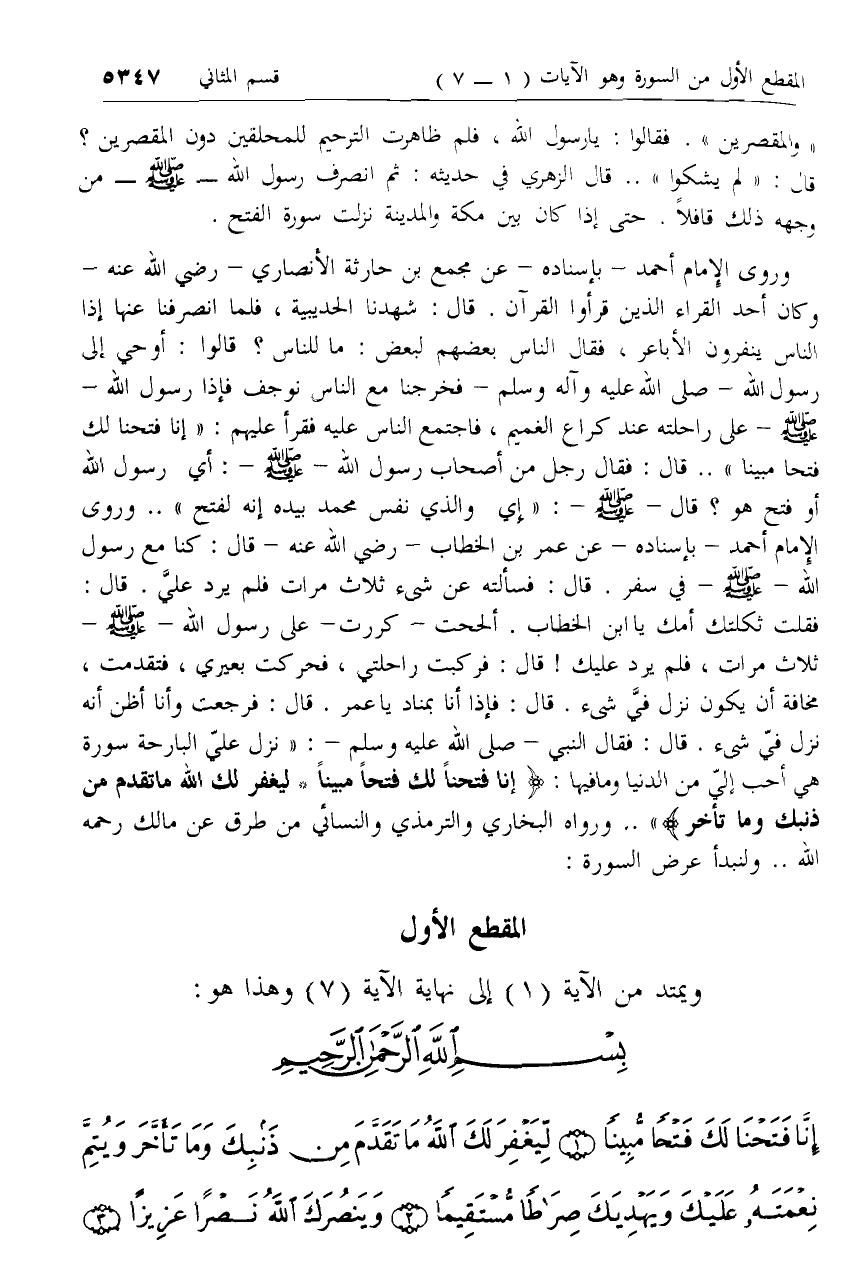 المقطع الأول من السورة وهو الآيات ( ١ ــ ٧ ) قسم المثاني ٥٣٤٧
« والمقصرين » . فقالوا : يارسول الله ، فلم ظاهرت الترحيم للمحلقين دون المقصرين ؟
قال : « لم يشكوا » .. قال الزهري في حديثه : ثم انصرف رسول الله ــ ﷺ ــ من
وجهه ذلك قافلاً . حتى إذا كان بين مكة والمدينة نزلت سورة الفتح .
وروى الإمام أحمد – بإسناده – عن مجمع بن حارثة الأنصاري – رضي الله عنه –
وكان أحد القراء الذين قرأوا القرآن . قال : شهدنا الحديبية ، فلما انصرفنا عنها إذا
الناس ينفرون الأباعر ، فقال الناس بعضهم لبعض : ما للناس ؟ قالوا : أوحي إلى
رسول الله – صلى الله عليه وآله وسلم – فخرجنا مع الناس نوجف فإذا رسول الله –
ﷺ – على راحلته عند كراع الغميم ، فاجتمع الناس عليه فقرأ عليهم : « إنا فتحنا لك
فتحا مبينا » .. قال : فقال رجل من أصحاب رسول الله – ﷺ – : أي رسول الله
أو فتح هو ؟ قال – ﷺ – : « إي والذي نفس محمد بيده إنه لفتح » .. وروى
الإمام أحمد – بإسناده – عن عمر بن الخطاب – رضي الله عنه – قال : كنا مع رسول
الله – ﷺ – في سفر . قال : فسألته عن شىء ثلاث مرات فلم يرد عليَّ . قال :
فقلت ثكلتك أمك ياابن الخطاب . ألححت – كررت– على رسول الله – ﷺ –
ثلاث مرات ، فلم يرد عليك ! قال : فركبت راحلتي ، فحركت بعيري ، فتقدمت ،
مخافة أن يكون نزل فيَّ شىء . قال : فإذا أنا بمناد ياعمر . قال : فرجعت وأنا أظن أنه
نزل فيّ شىء . قال : فقال النبي – صلى الله عليه وسلم – : « نزل عليّ البارحة سورة
هي أحب إليّ من الدنيا ومافيها : ﴿ إنا فتحناً لك فتحاً مبيناً * ليغفر لك الله ماتقدم من
ذنبك وما تأخر ﴾» .. ورواه البخاري والترمذي والنسائي من طرق عن مالك رحمه
الله .. ولنبدأ عرض السورة :
المقطع الأول
ويمتد من الآية (١) إلى نهاية الآية (٧) وهذا هو :
بِسْمِ ٱللَّهِ ٱلرَّحْمَٰنِ ٱلرَّحِيمِ
إِنَّا فَتَحْنَا لَكَ فَتْحًا مُّبِينًا ﴿١﴾ لِّيَغْفِرَ لَكَ ٱللَّهُ مَا تَقَدَّمَ مِن ذَنۢبِكَ وَمَا تَأَخَّرَ وَيُتِمَّ
نِعْمَتَهُۥ عَلَيْكَ وَيَهْدِيَكَ صِرَٰطًا مُّسْتَقِيمًا ﴿٢﴾ وَيَنصُرَكَ ٱللَّهُ نَصْرًا عَزِيزًا ﴿٣﴾